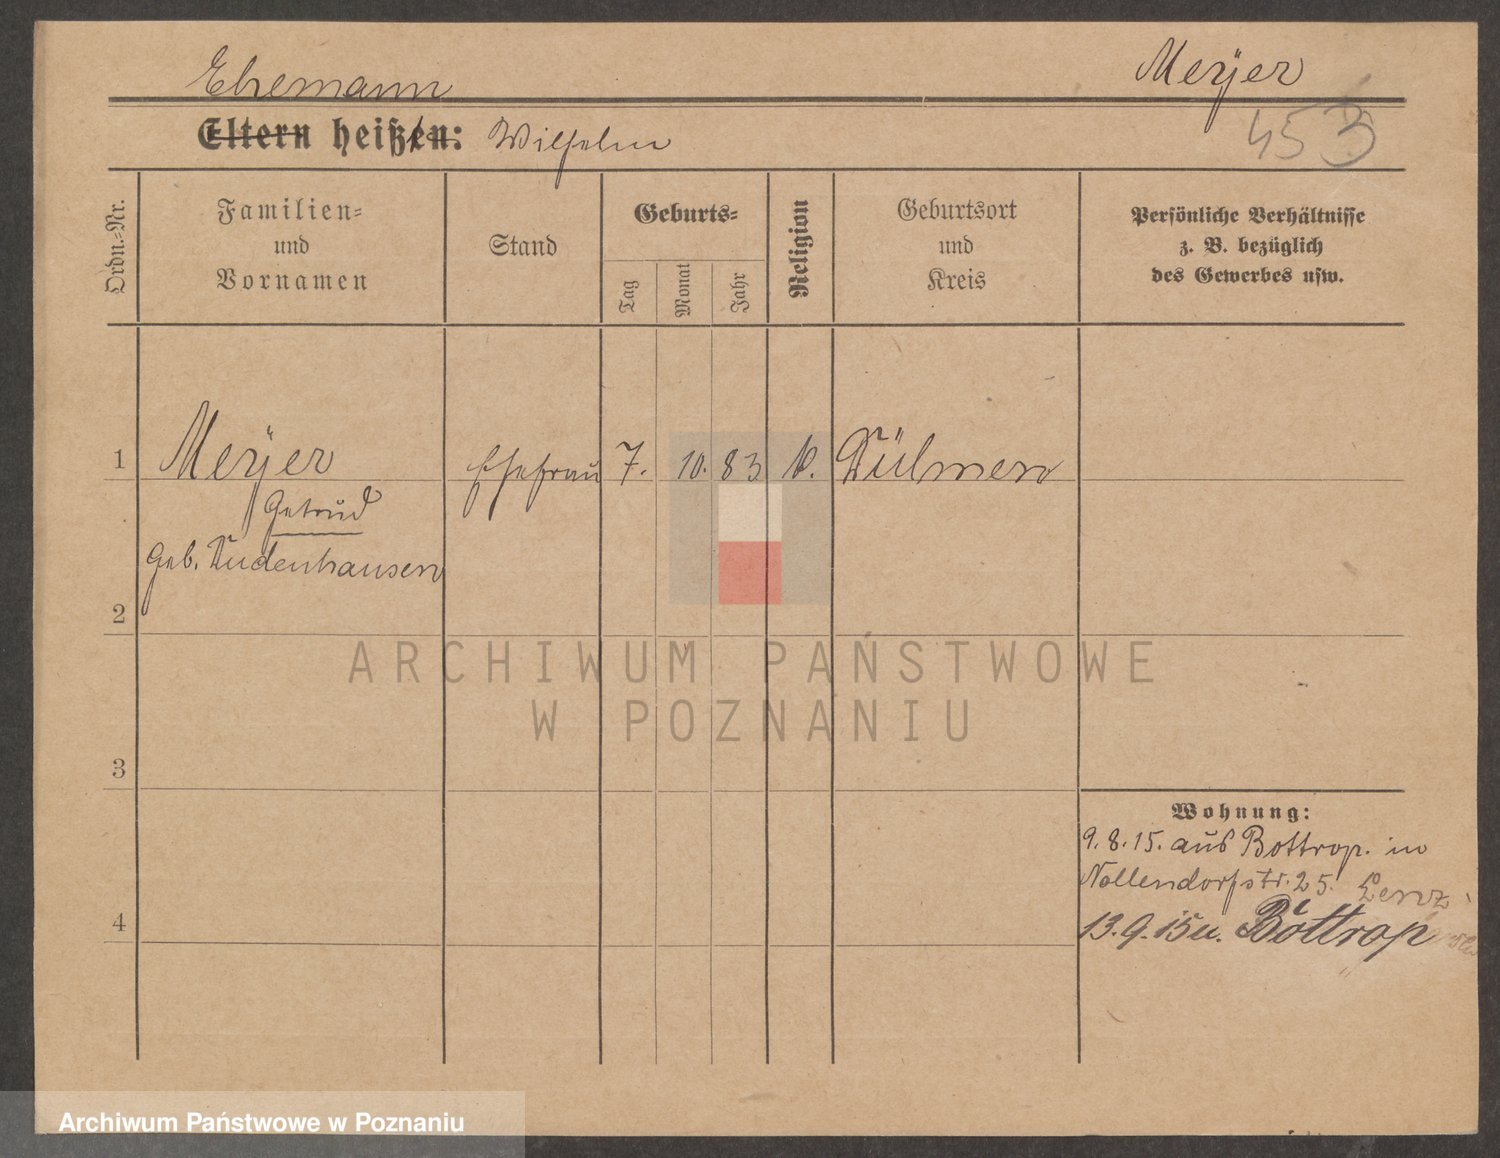 Ehemann Meyer
Eltern heißen: Wilhelm 453
Ordn.-Nr. Familien- und Vornamen Stand Geburts- Tag Monat Jahr Religion Geburtsort und Kreis Persönliche Verhältnisse z. B. bezüglich des Gewerbes usw.
1 Meyer Ehefrau 7. 10. 83 k. Dülmen
Getrud
geb. Dudenhausen
2
ARCHIWUM PAŃSTWOWE
W POZNANIU
3
Wohnung:
9.8.15. aus Bottrop. in
Nollendorfstr. 25.
4 13.9.15 u. Bottrop
Archiwum Państwowe w Poznaniu